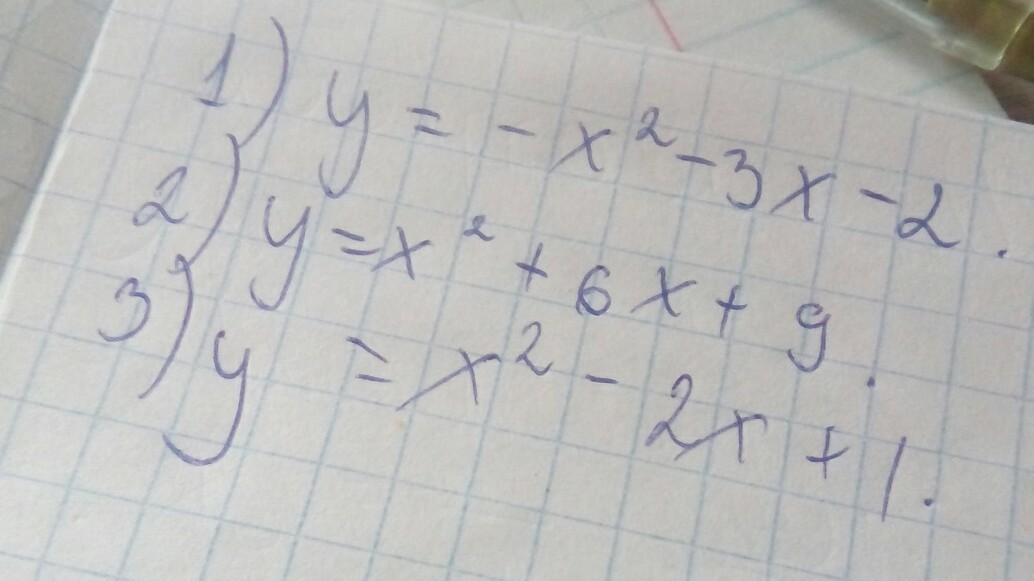 1) y = -x² - 3x - 2.
2) y = x² + 6x + 9.
3) y = x² - 2x + 1.